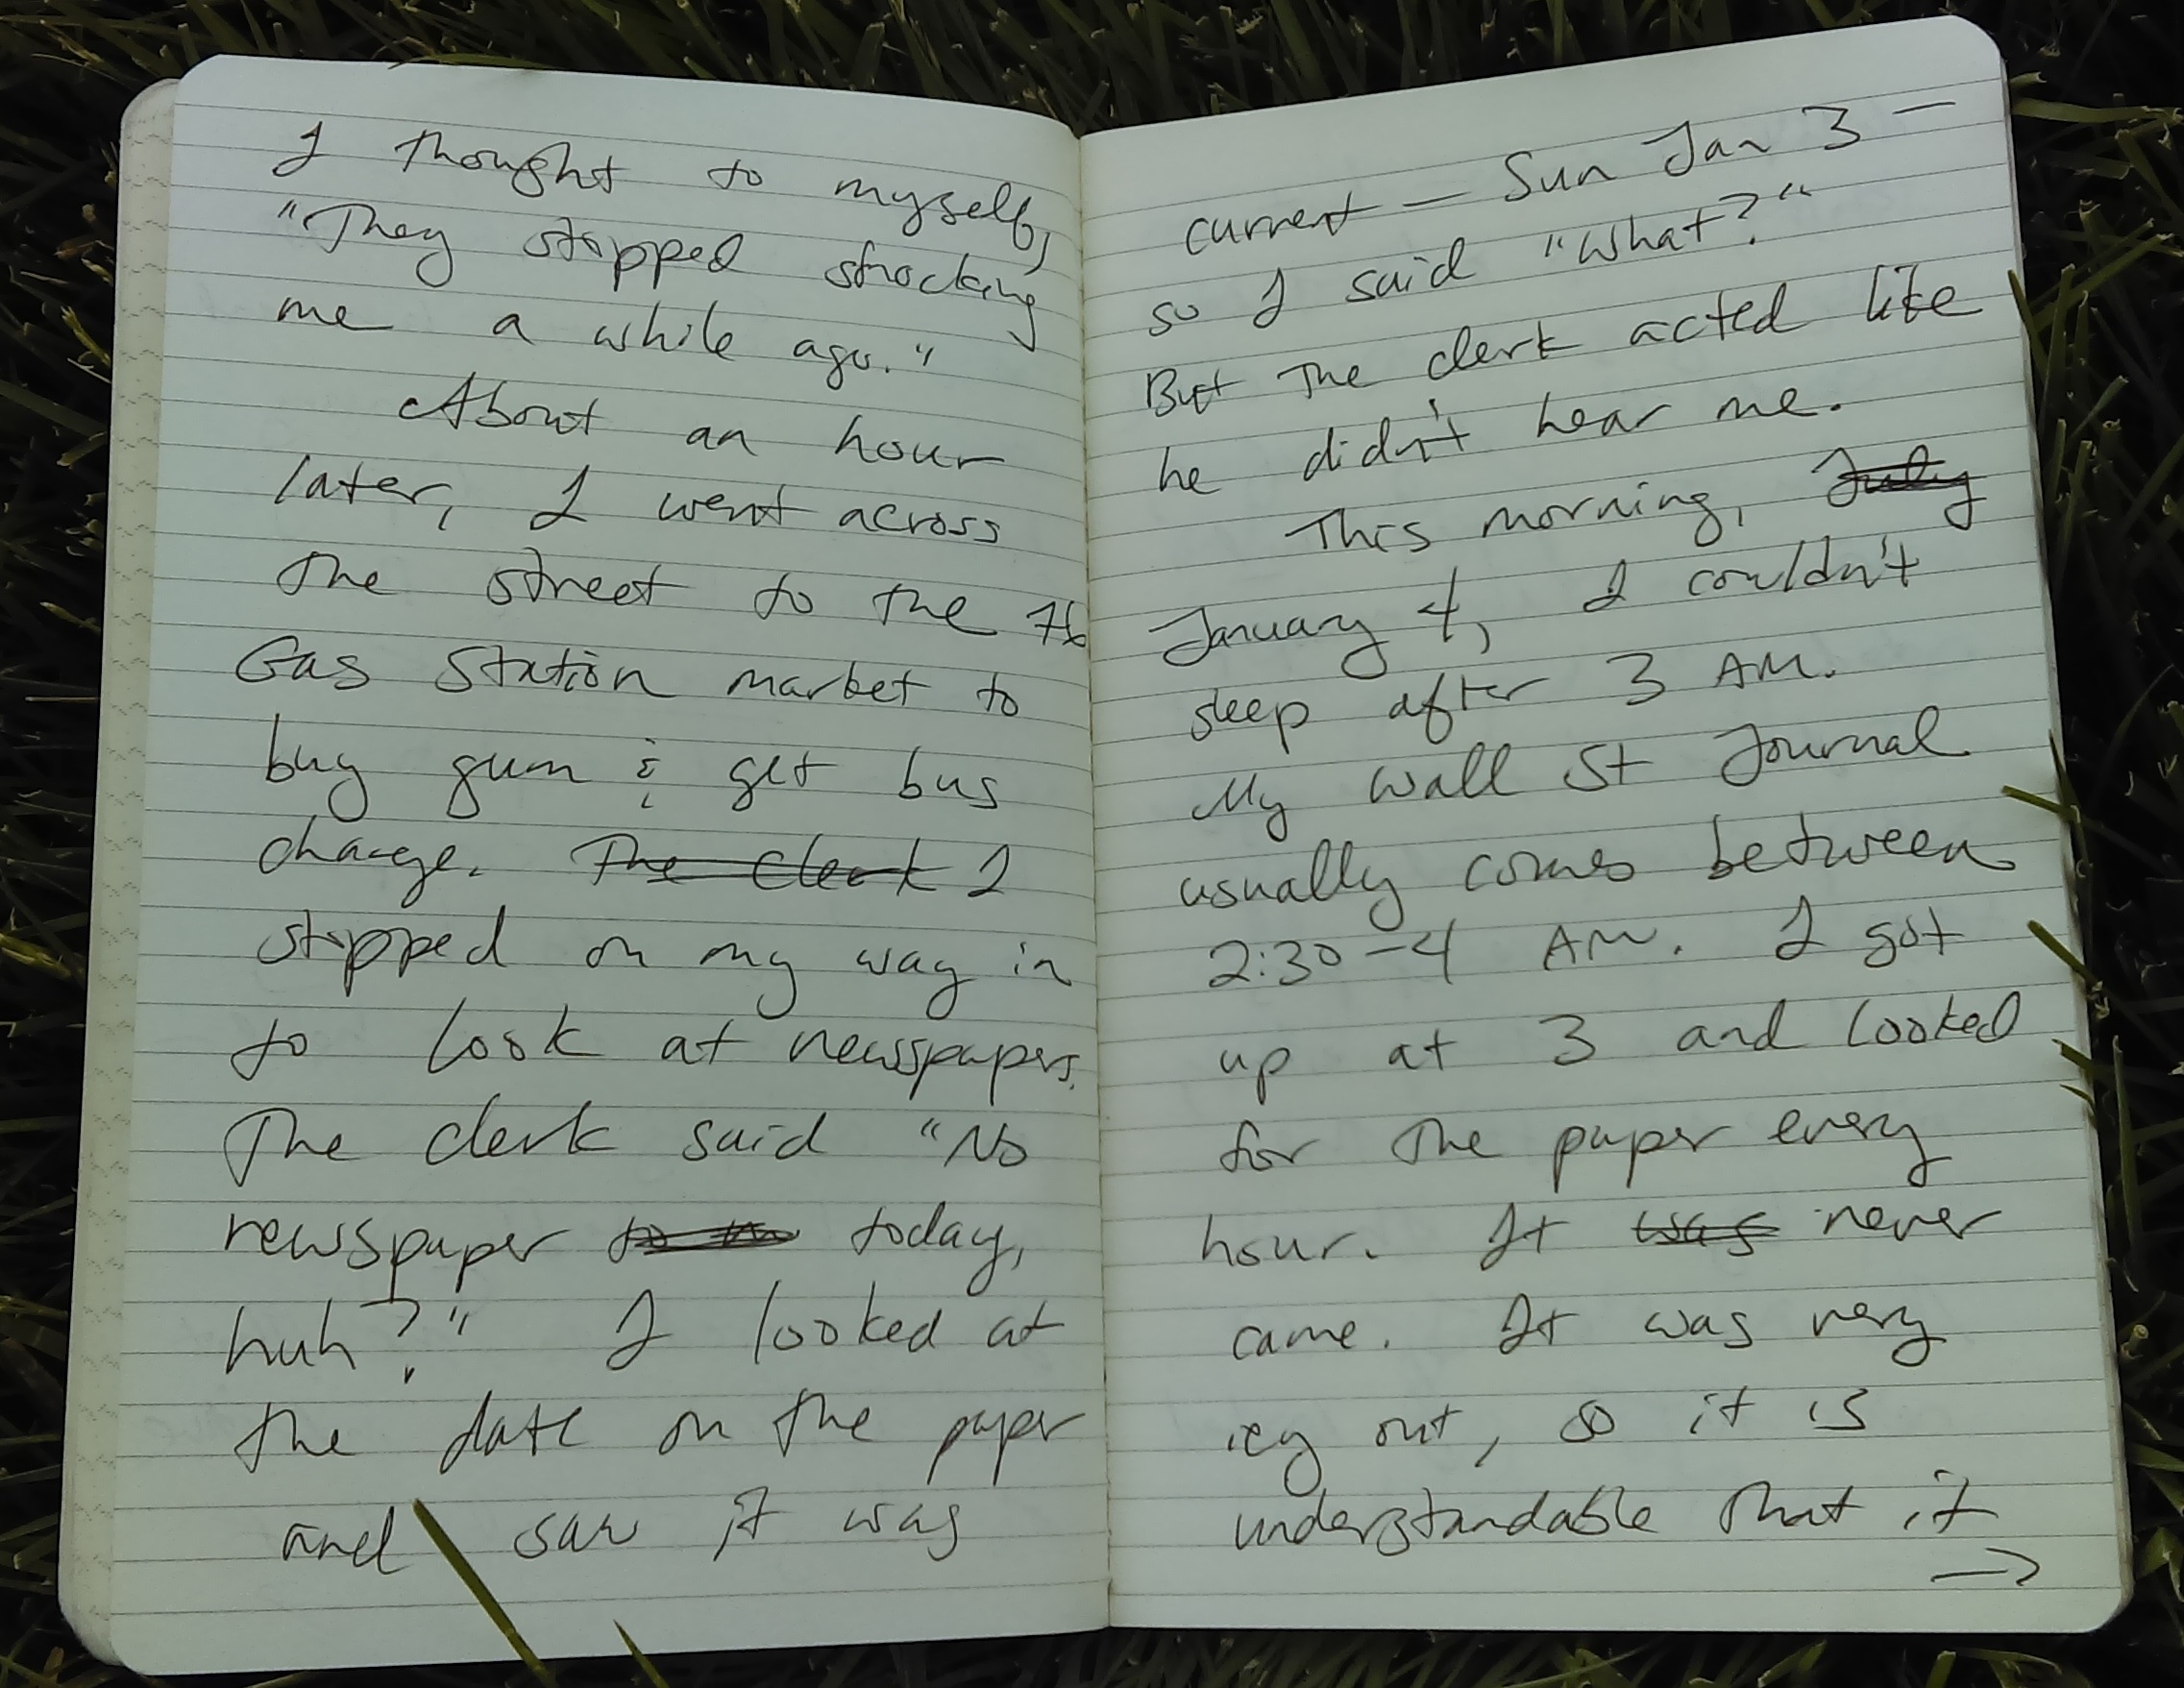 I thought to myself,
"They stopped shocking
me a while ago."
About an hour
later, I went across
the street to the 76
Gas Station market to
buy gum & get bus
change. The Clerk I
stopped on my way in
to look at newspapers.
The clerk said "No
newspaper today,
huh?" I looked at
the date on the paper
and saw it was
current — Sun Jan 3 —
so I said "What?"
But the clerk acted like
he didn't hear me.
This morning, July
January 4, I couldn't
sleep after 3 AM.
My Wall St Journal
usually comes between
2:30-4 AM. I got
up at 3 and looked
for the paper every
hour. It was never
came. It was very
icy out, so it is
understandable that it
→